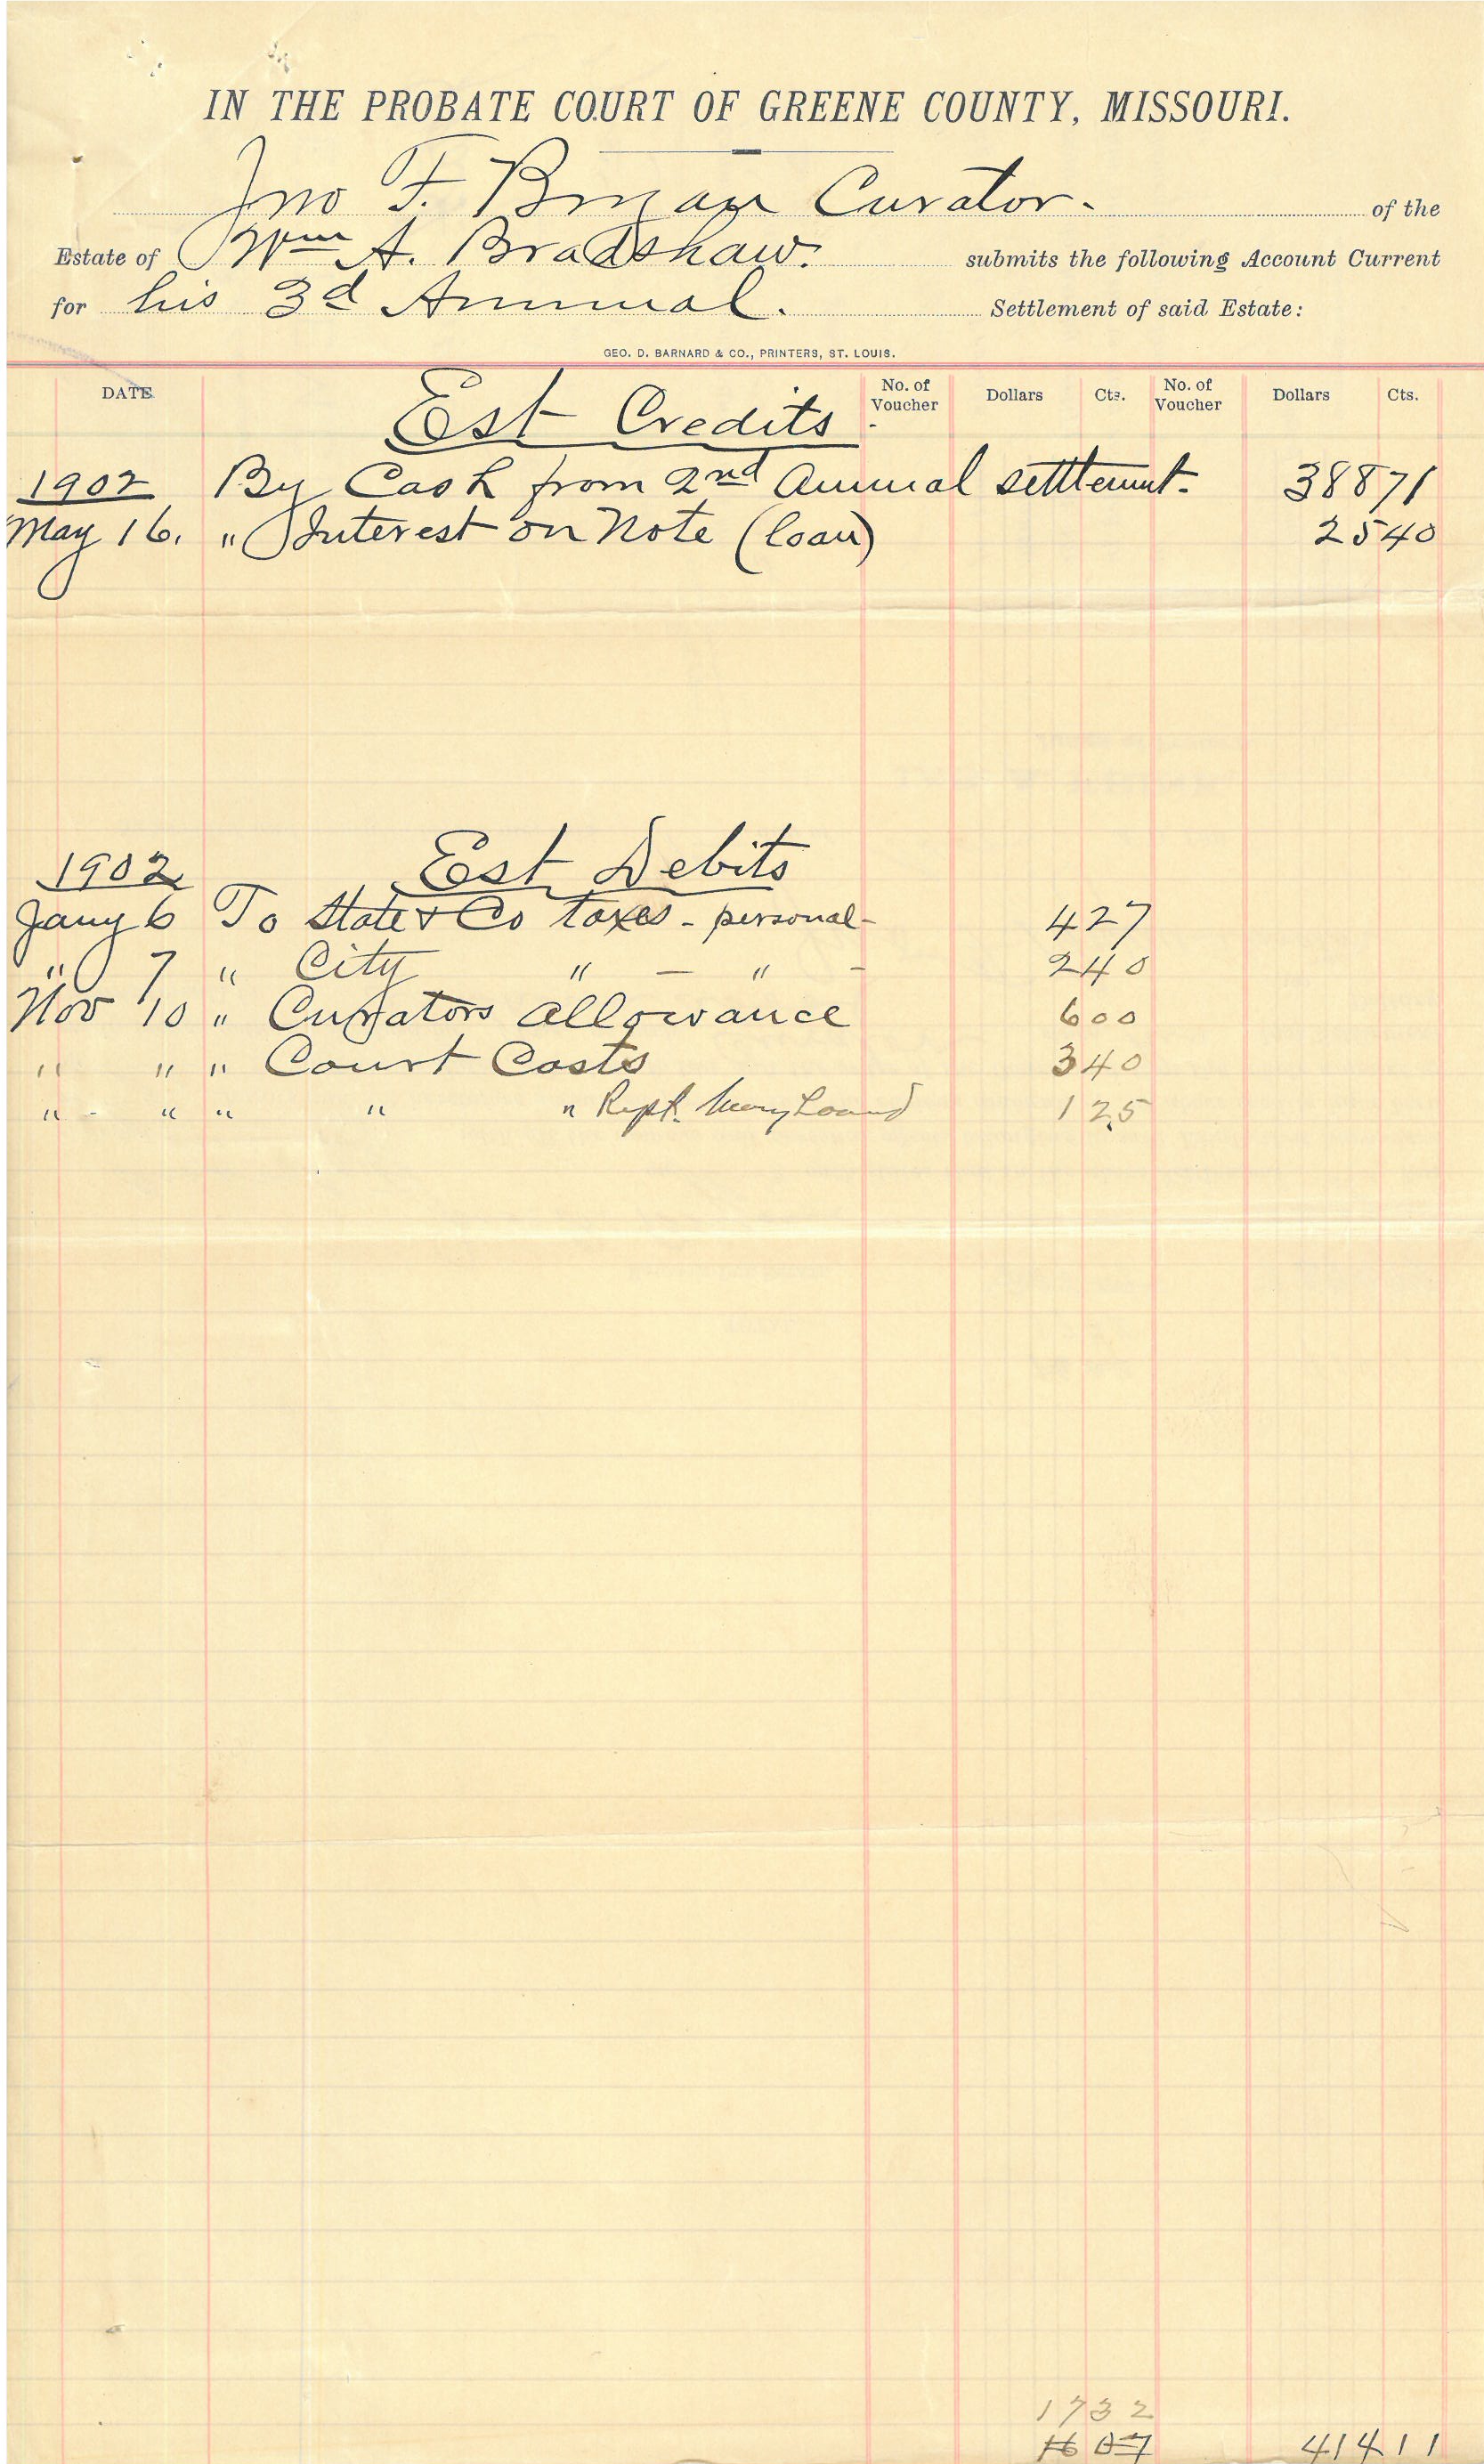 IN THE PROBATE COURT OF GREENE COUNTY, MISSOURI.
Jno F. Bryan Curator. of the
Estate of Wm A. Bradshaw. submits the following Account Current
for his 3d Annual. Settlement of said Estate:
GEO. D. BARNARD & CO., PRINTERS, ST. LOUIS.
DATE. No. of Voucher Dollars Cts. No. of Voucher Dollars Cts.
Est Credits
1902 By Cash from 2nd Annual settlement. 388 71
May 16. " Interest on Note (loan) 25 40
1902 Est Debits
Jany 6 To State & Co taxes - personal - 4 27
" 7 " City " - " - 2 40
Nov 10 " Curators allowance 6 00
" " " Court Costs 3 40
" - " " " " Rept. 1 25
17 32
16 07 414 11